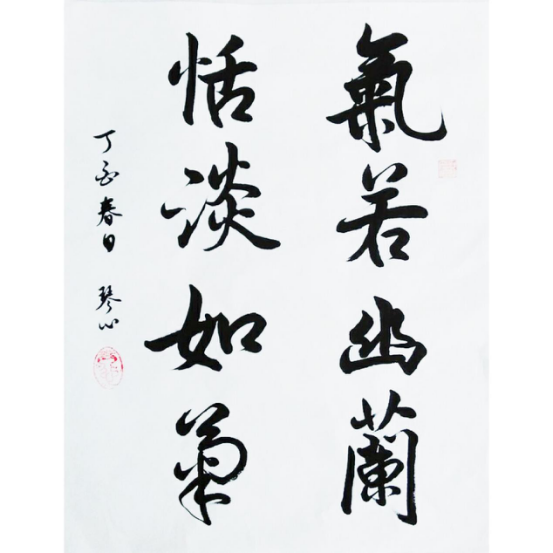 氣若幽蘭
恬淡如菊
丁酉春日 琴心